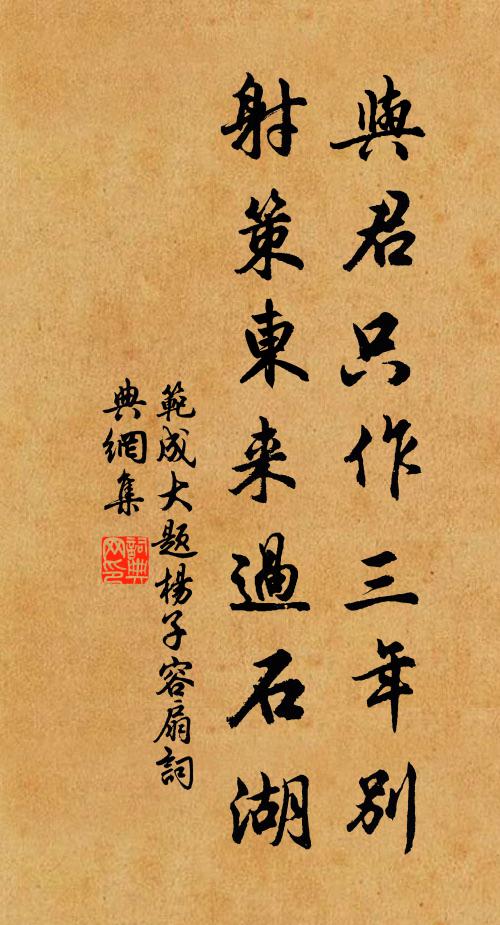 與君只作三年別
射策東来過石湖
範成大题楊子容扇詞
典網集
詞典
网印